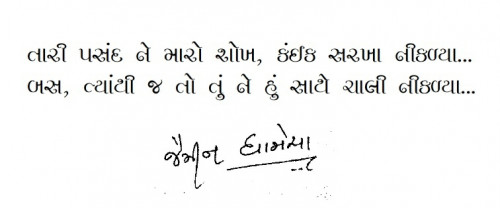 તારી પસંદ ને મારો શોખ, કંઈક સરખા નીકળ્યા...
બસ, ત્યાંથી જ તો તું ને હું સાથે ચાલી નીકળ્યા...
જૈમીન ધામેચા